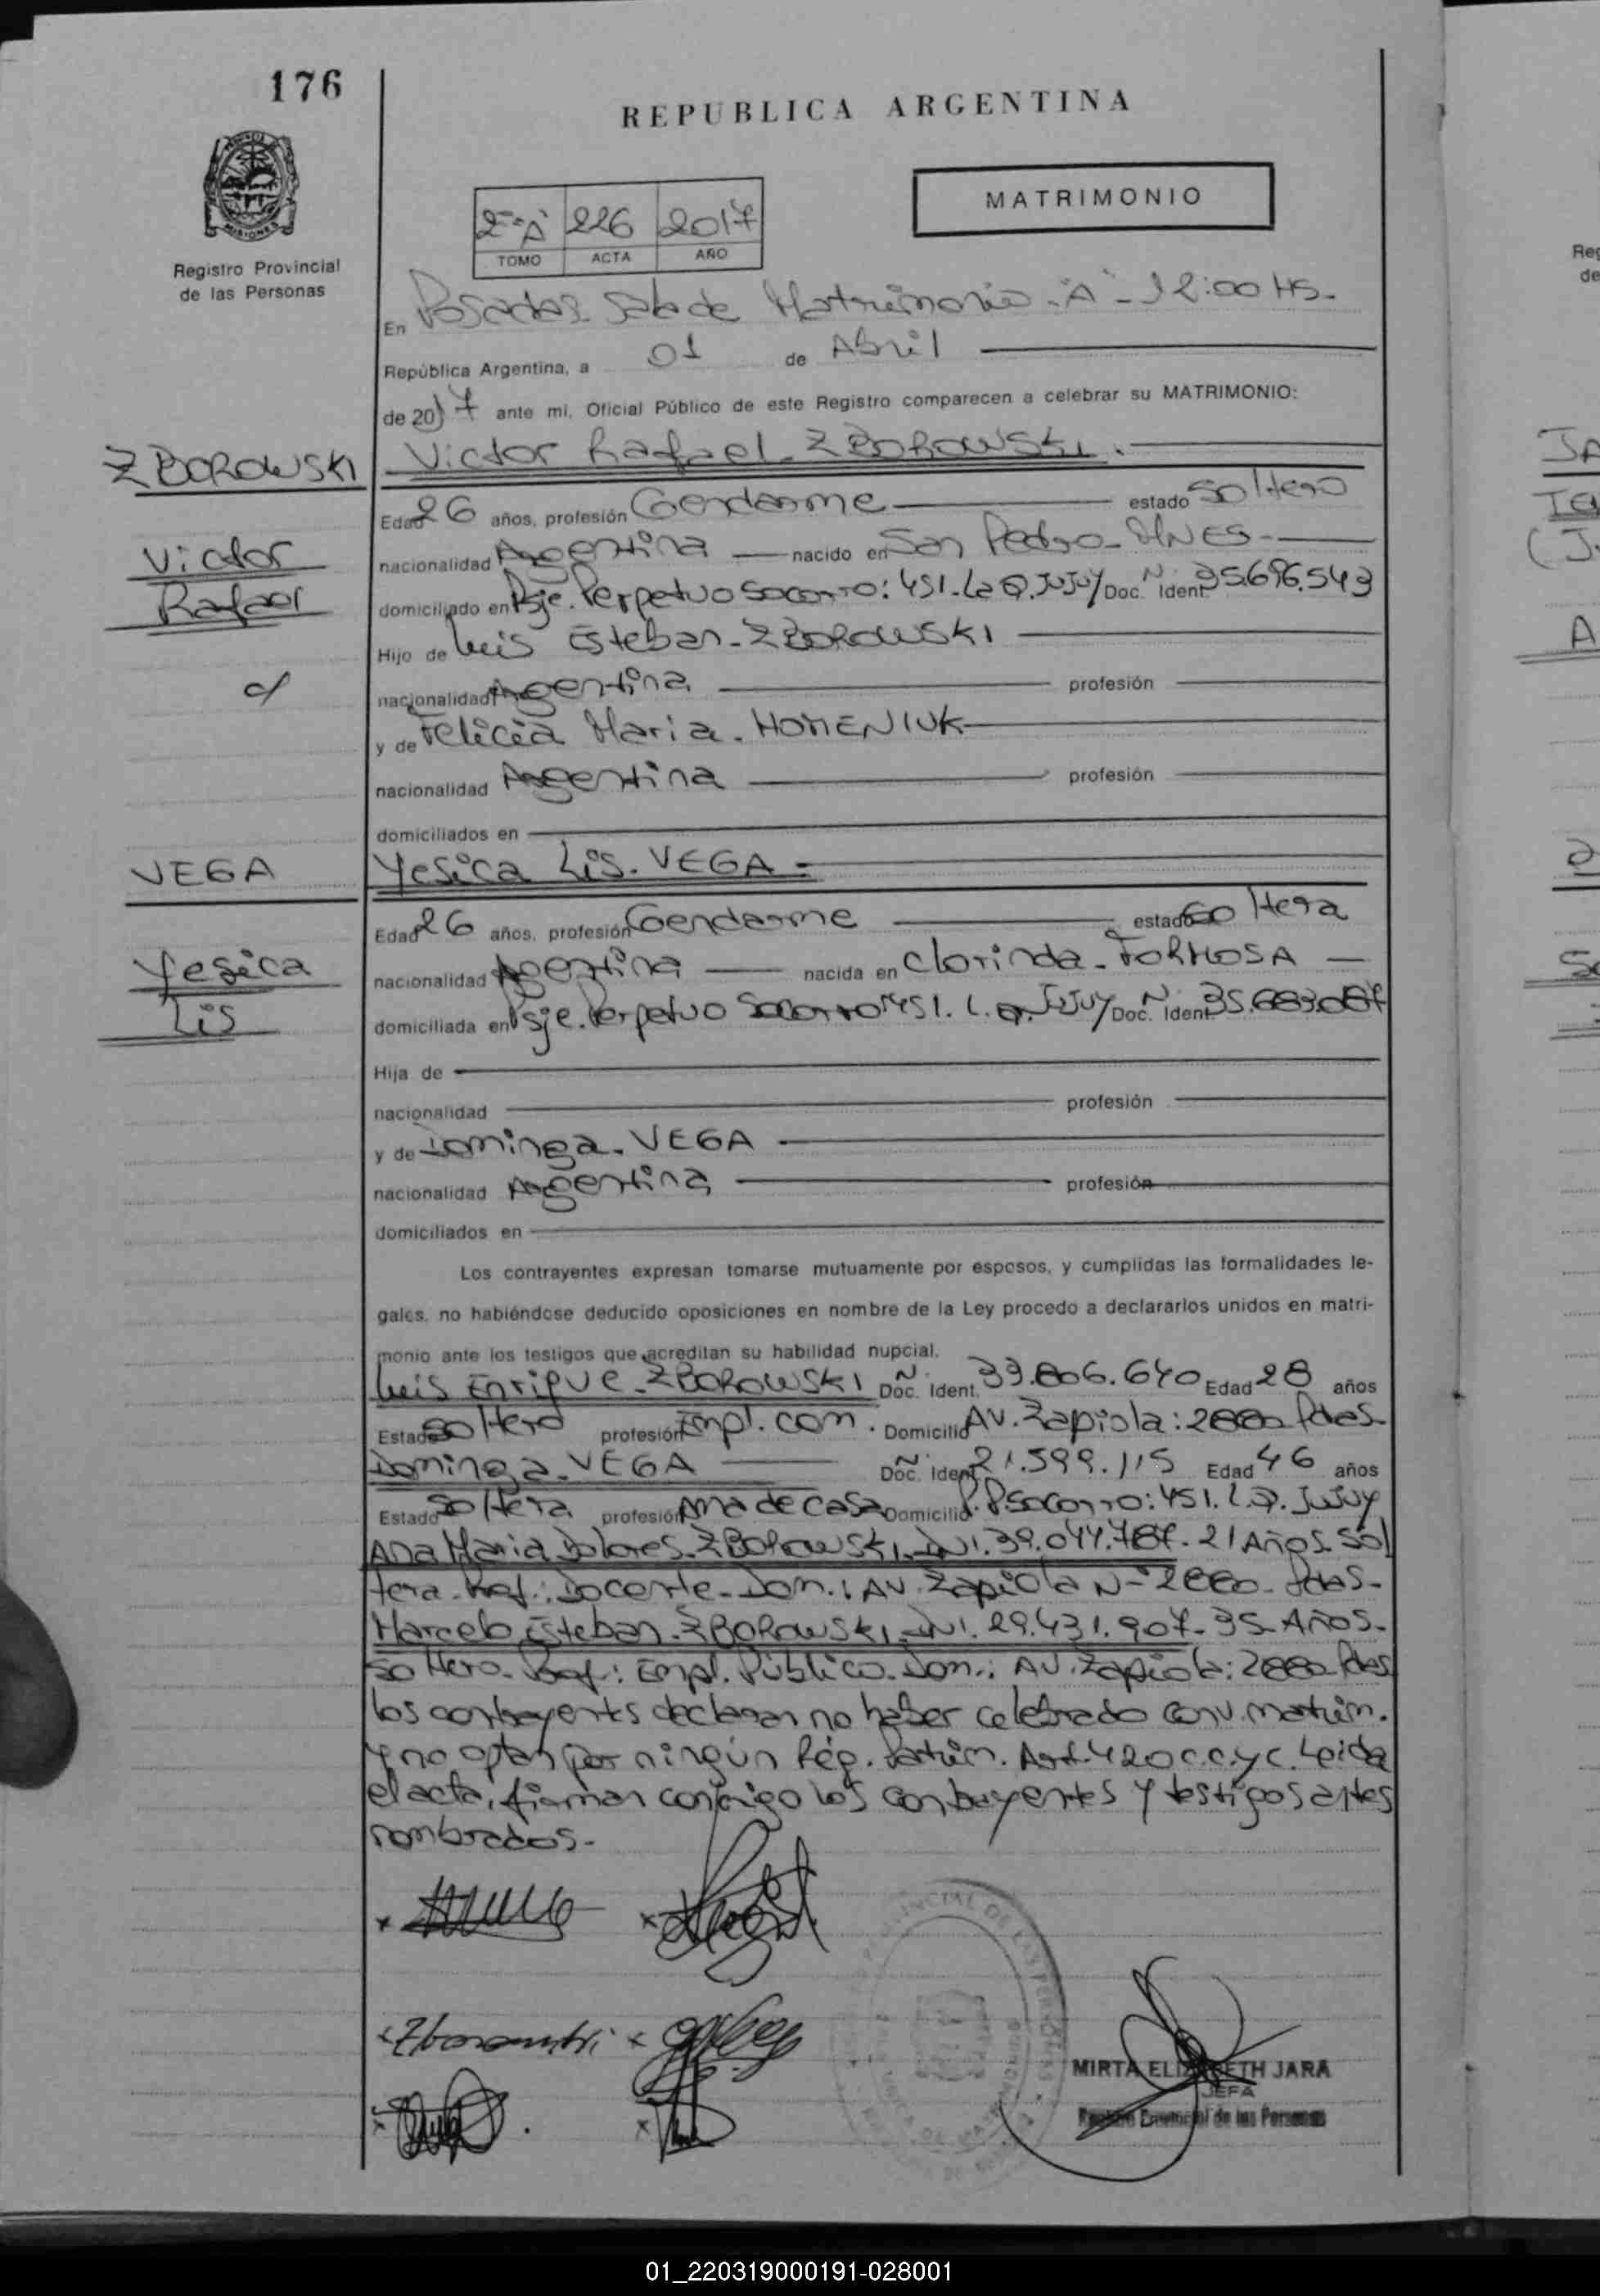 176
REPUBLICA ARGENTINA
MATRIMONIO
2º "A" 226 2017
TOMO ACTA AÑO
Registro Provincial
de las Personas
En Posadas. Sala de Matrimonio - "A" - 12:00 Hs.
República Argentina, a 01 de Abril
de 2017 ante mi, Oficial Público de este Registro comparecen a celebrar su MATRIMONIO:
ZBOROWSKI Victor Rafael ZBOROWSKI.
Edad 26 años, profesión Gendarme estado Soltero
Victor
nacionalidad Argentina nacido en San Pedro - MNES -
Rafael
domiciliado en Psje. Perpetuo Socorro: 451. La Q. JUJUY Doc. Nº Ident. 35.696.543
Hijo de Luis Esteban - ZBOROWSKI
c/
nacionalidad Argentina profesión
y de Felicia Maria. HOMENIUK
nacionalidad Argentina profesión
domiciliados en
VEGA Yesica Lis. VEGA
Edad 26 años, profesión Gendarme estado Soltera
Yesica
nacionalidad Argentina nacida en Clorinda - FORMOSA
Lis
domiciliada en Psje. Perpetuo Socorro 451. L. Q. JUJUY Doc. Nº Ident. 35.683.087
Hija de
nacionalidad profesión
y de Dominga. VEGA
nacionalidad Argentina profesión
domiciliados en
Los contrayentes expresan tomarse mutuamente por esposos, y cumplidas las formalidades le-
gales, no habiéndose deducido oposiciones en nombre de la Ley procedo a declararlos unidos en matri-
monio ante los testigos que acreditan su habilidad nupcial.
Luis Enrique - ZBOROWSKI Doc. Ident. 33.806.640 Edad 28 años
Estado Soltero profesión Empl. Com. Domicilio AV. Zapiola: 2880 Pdas.
Dominga - VEGA Doc. Ident. 21.599.115 Edad 46 años
Estado Soltera profesión Ama de Casa Domicilio P. P. Socorro: 451. L. Q. JUJUY
Ana Maria Dolores - ZBOROWSKI - DNI. 39.044.787 - 21 Años - Sol
tera - Prof.: Docente - Dom.: AV. Zapiola Nº 2880 - Pdas -
Marcelo Esteban - ZBOROWSKI - DNI. 29.431.907 - 35 - Años -
Soltero - Prof.: Empl. Público - Dom.: AV. Zapiola: 2880 Pdas
los contrayentes declaran no haber celebrado Conv. matrim.
y no optan por ningún Rég. Patrim. Art. 420 C.C. y C. Leida
el acta, firman conmigo los contrayentes y testigos antes
nombrados -
MIRTA ELIZABETH JARA
JEFA
Registro Provincial de las Personas
01_220319000191-028001